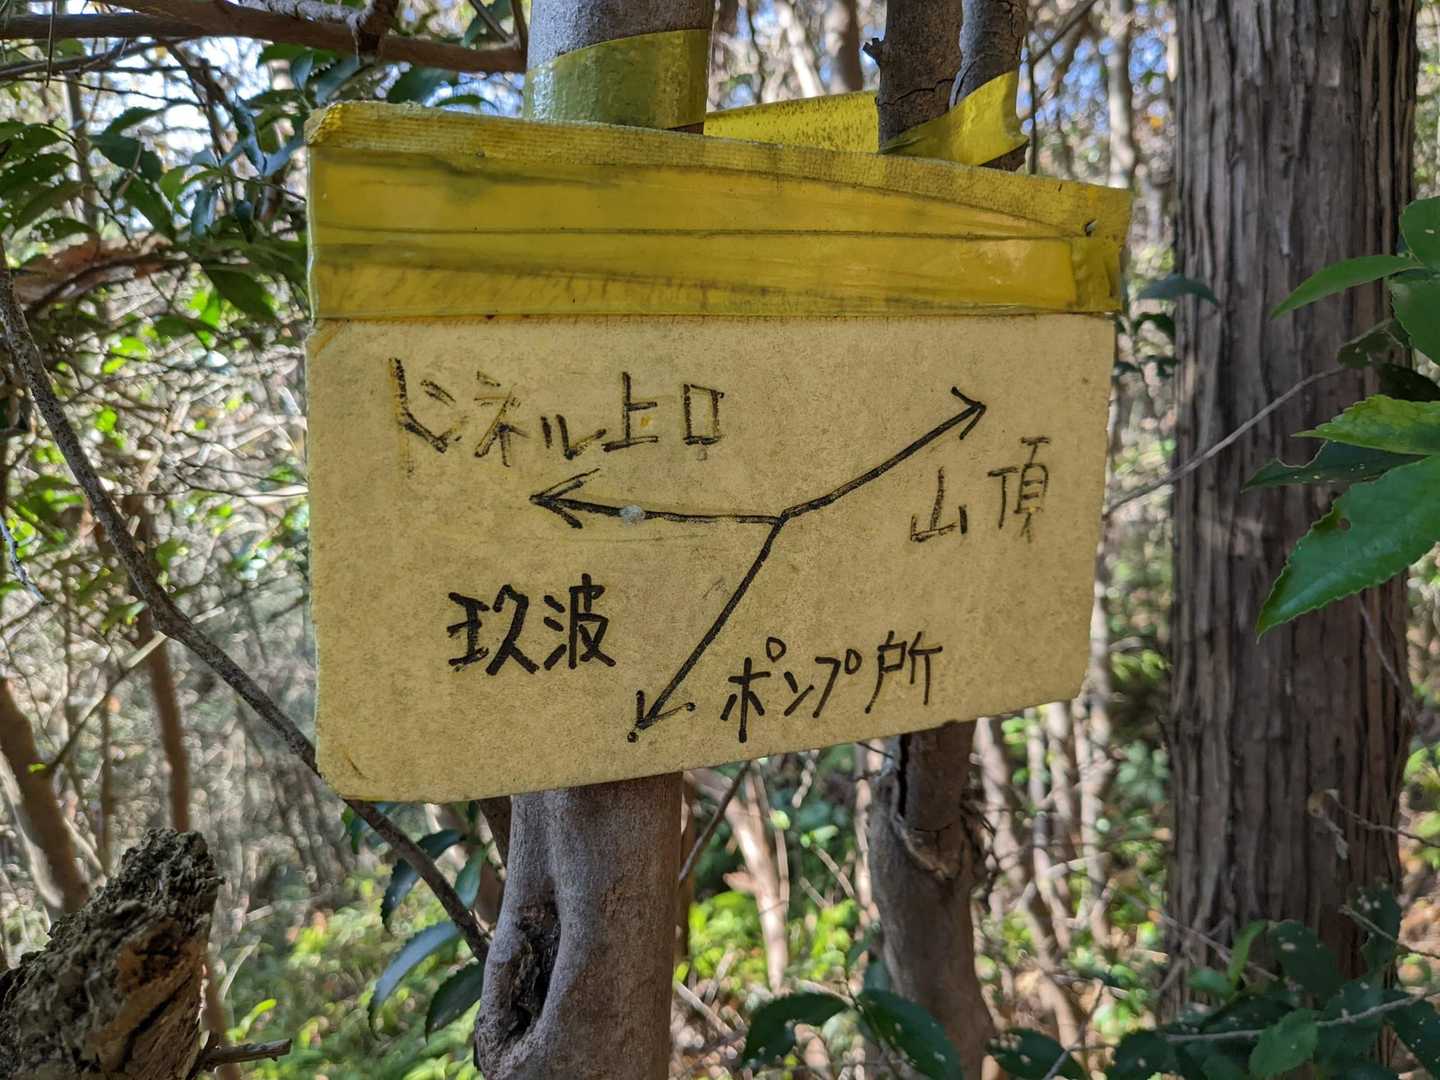 トンネル上口
山頂
玖波
ポンプ所